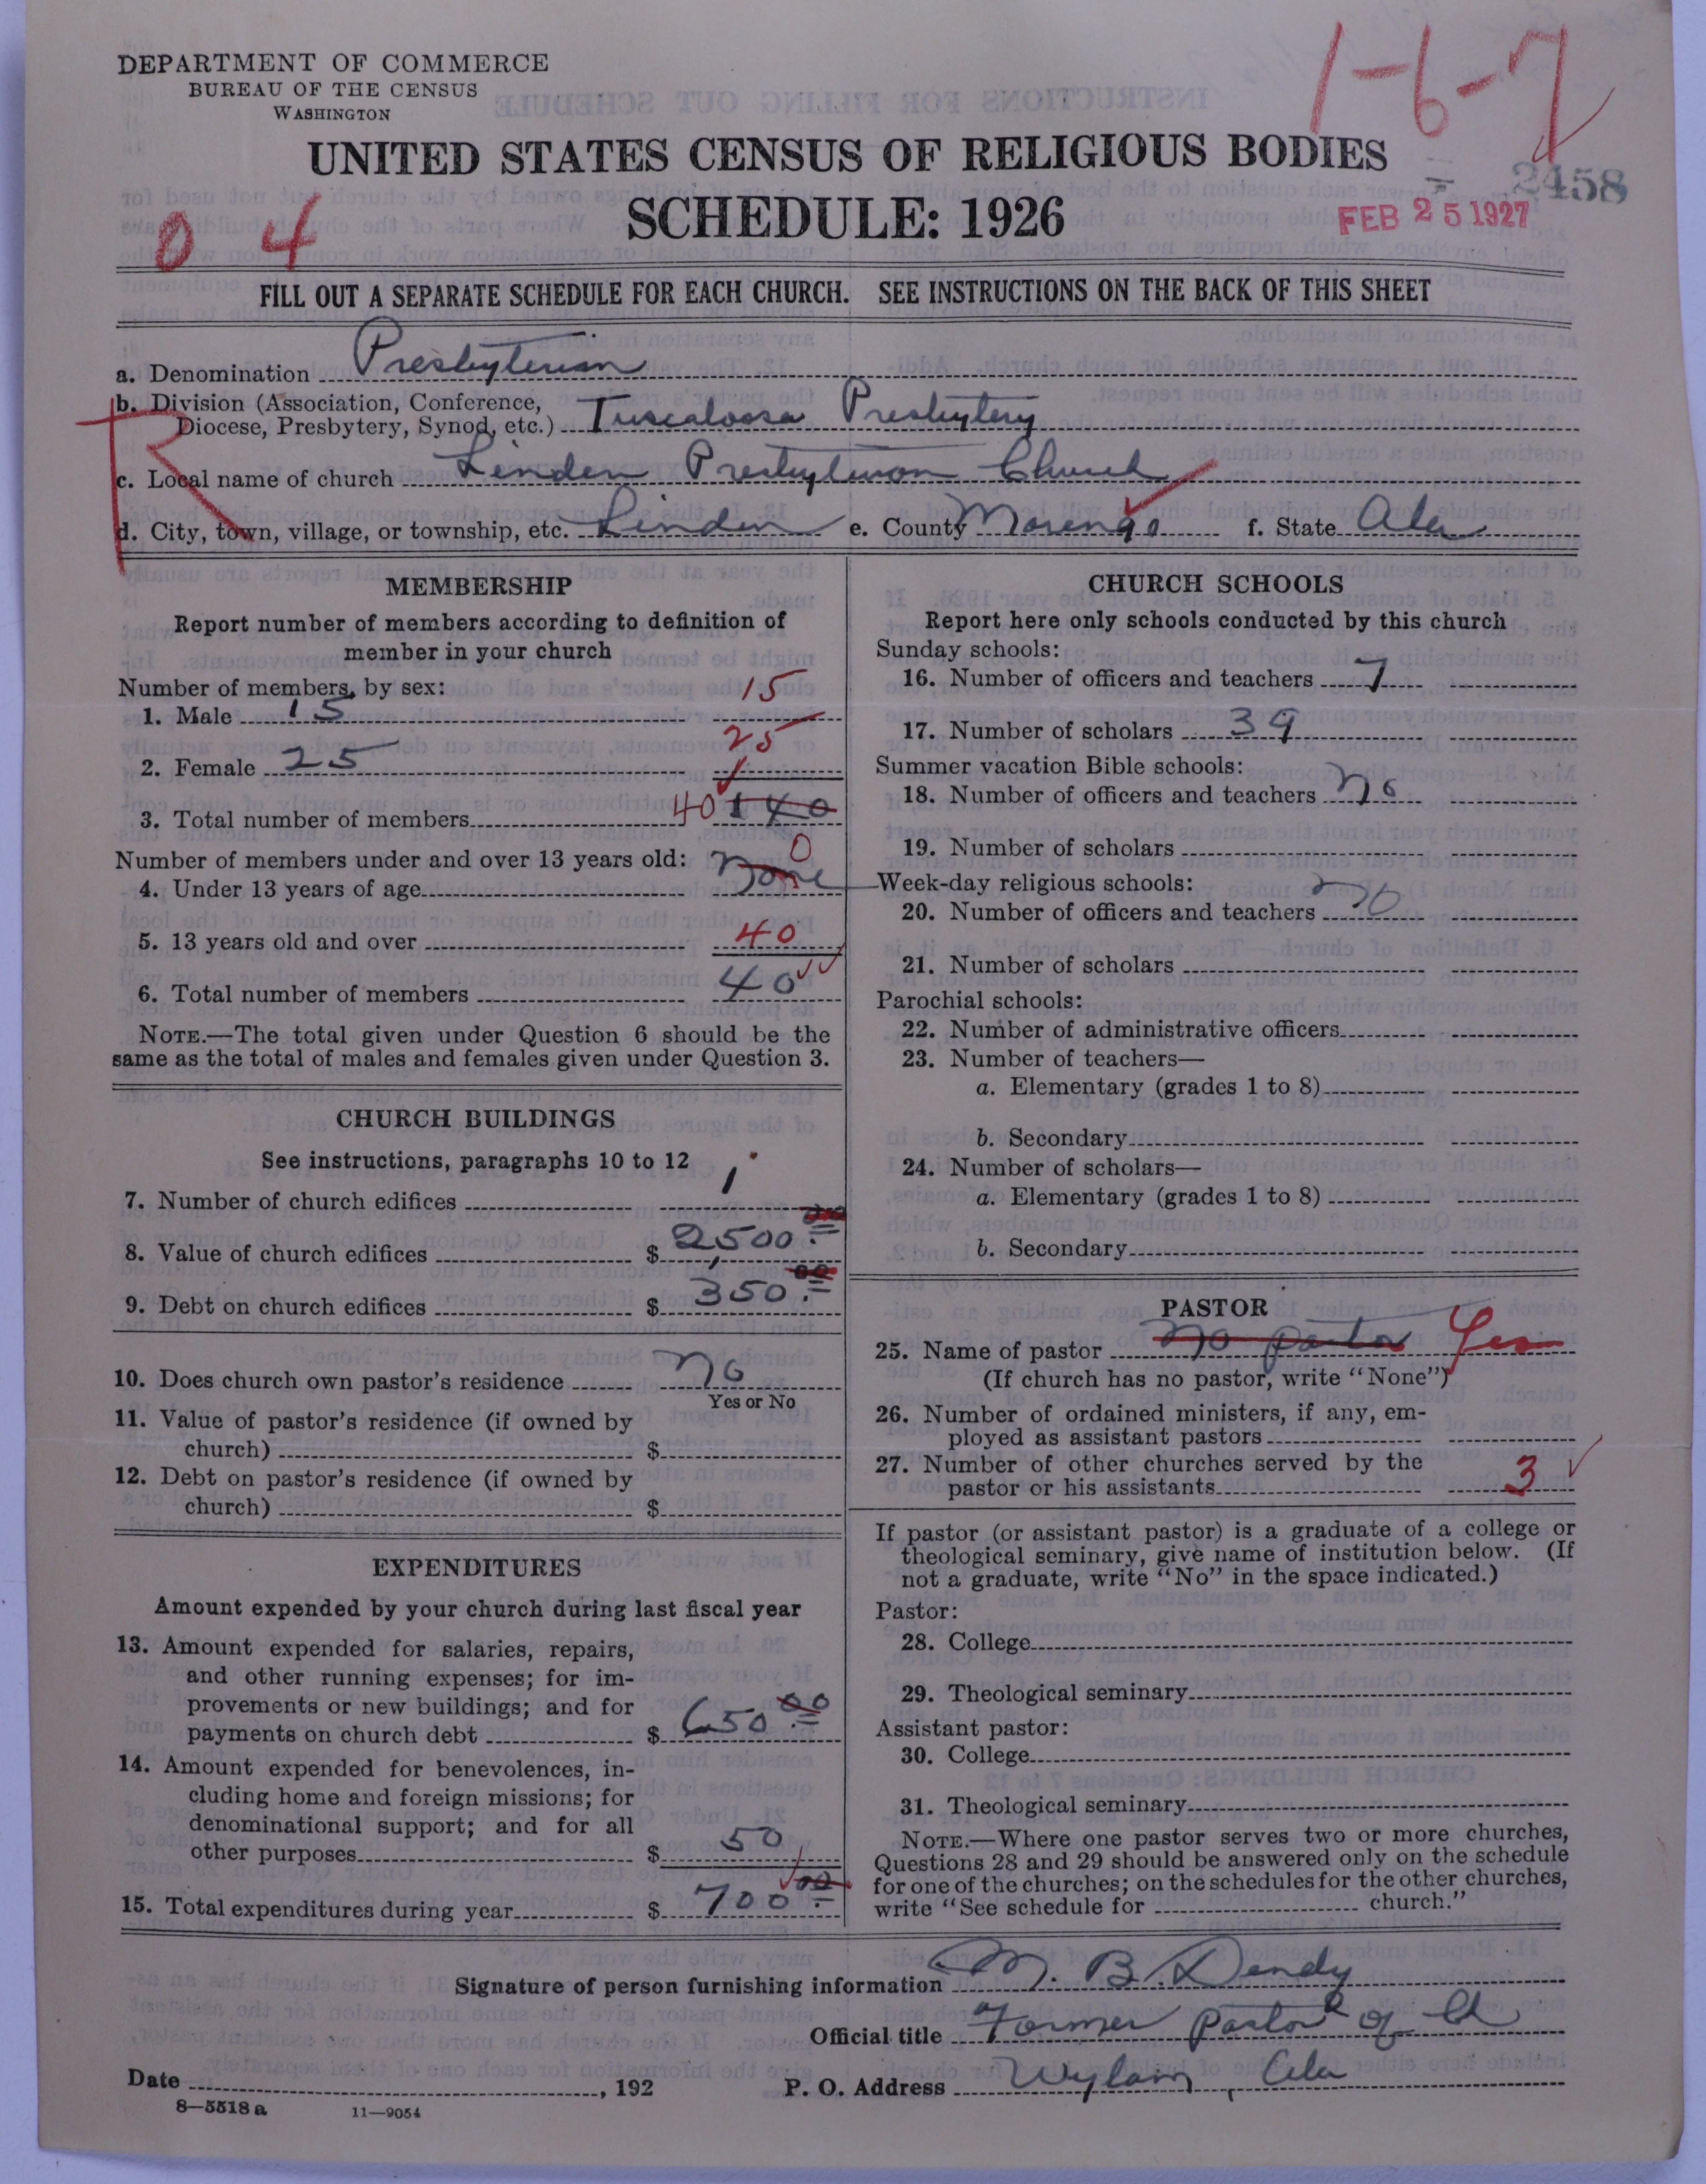 DEPARTMENT OF COMMERCE
BUREAU OF THE CENSUS
WASHINGTON
1-6-7
UNITED STATES CENSUS OF RELIGIOUS BODIES
SCHEDULE: 1926
2458
FEB 25 1927
0 4
FILL OUT A SEPARATE SCHEDULE FOR EACH CHURCH. SEE INSTRUCTIONS ON THE BACK OF THIS SHEET
a. Denomination Presbyterian
b. Division (Association, Conference, Diocese, Presbytery, Synod, etc.) Tuscaloosa Presbytery
R
c. Local name of church Linden Presbyterian Church
d. City, town, village, or township, etc. Linden e. County Marengo f. State Ala
MEMBERSHIP
Report number of members according to definition of
member in your church
Number of members, by sex:
1. Male 15 15
2. Female 25 25
3. Total number of members 40 140
Number of members under and over 13 years old:
4. Under 13 years of age None 0
5. 13 years old and over 40
6. Total number of members 40
NOTE.—The total given under Question 6 should be the
same as the total of males and females given under Question 3.
CHURCH BUILDINGS
See instructions, paragraphs 10 to 12
7. Number of church edifices 1
8. Value of church edifices $ 2,500.00
9. Debt on church edifices $ 350.00
10. Does church own pastor's residence No
Yes or No
11. Value of pastor's residence (if owned by
church) $
12. Debt on pastor's residence (if owned by
church) $
EXPENDITURES
Amount expended by your church during last fiscal year
13. Amount expended for salaries, repairs,
and other running expenses; for im-
provements or new buildings; and for
payments on church debt $ 650.00
14. Amount expended for benevolences, in-
cluding home and foreign missions; for
denominational support; and for all
other purposes $ 50
15. Total expenditures during year $ 700.00
CHURCH SCHOOLS
Report here only schools conducted by this church
Sunday schools:
16. Number of officers and teachers 7
17. Number of scholars 39
Summer vacation Bible schools:
18. Number of officers and teachers No
19. Number of scholars
Week-day religious schools:
20. Number of officers and teachers No
21. Number of scholars
Parochial schools:
22. Number of administrative officers
23. Number of teachers—
a. Elementary (grades 1 to 8)
b. Secondary
24. Number of scholars—
a. Elementary (grades 1 to 8)
b. Secondary
PASTOR
25. Name of pastor No pastor Yes
(If church has no pastor, write "None")
26. Number of ordained ministers, if any, em-
ployed as assistant pastors
27. Number of other churches served by the
pastor or his assistants 3
If pastor (or assistant pastor) is a graduate of a college or
theological seminary, give name of institution below. (If
not a graduate, write "No" in the space indicated.)
Pastor:
28. College
29. Theological seminary
Assistant pastor:
30. College
31. Theological seminary
NOTE.—Where one pastor serves two or more churches,
Questions 28 and 29 should be answered only on the schedule
for one of the churches; on the schedules for the other churches,
write "See schedule for church."
Signature of person furnishing information M. B. Dendy
Official title Former Pastor of Ch
Date , 192 P. O. Address Wylam, Ala
8—5518 a 11—9054